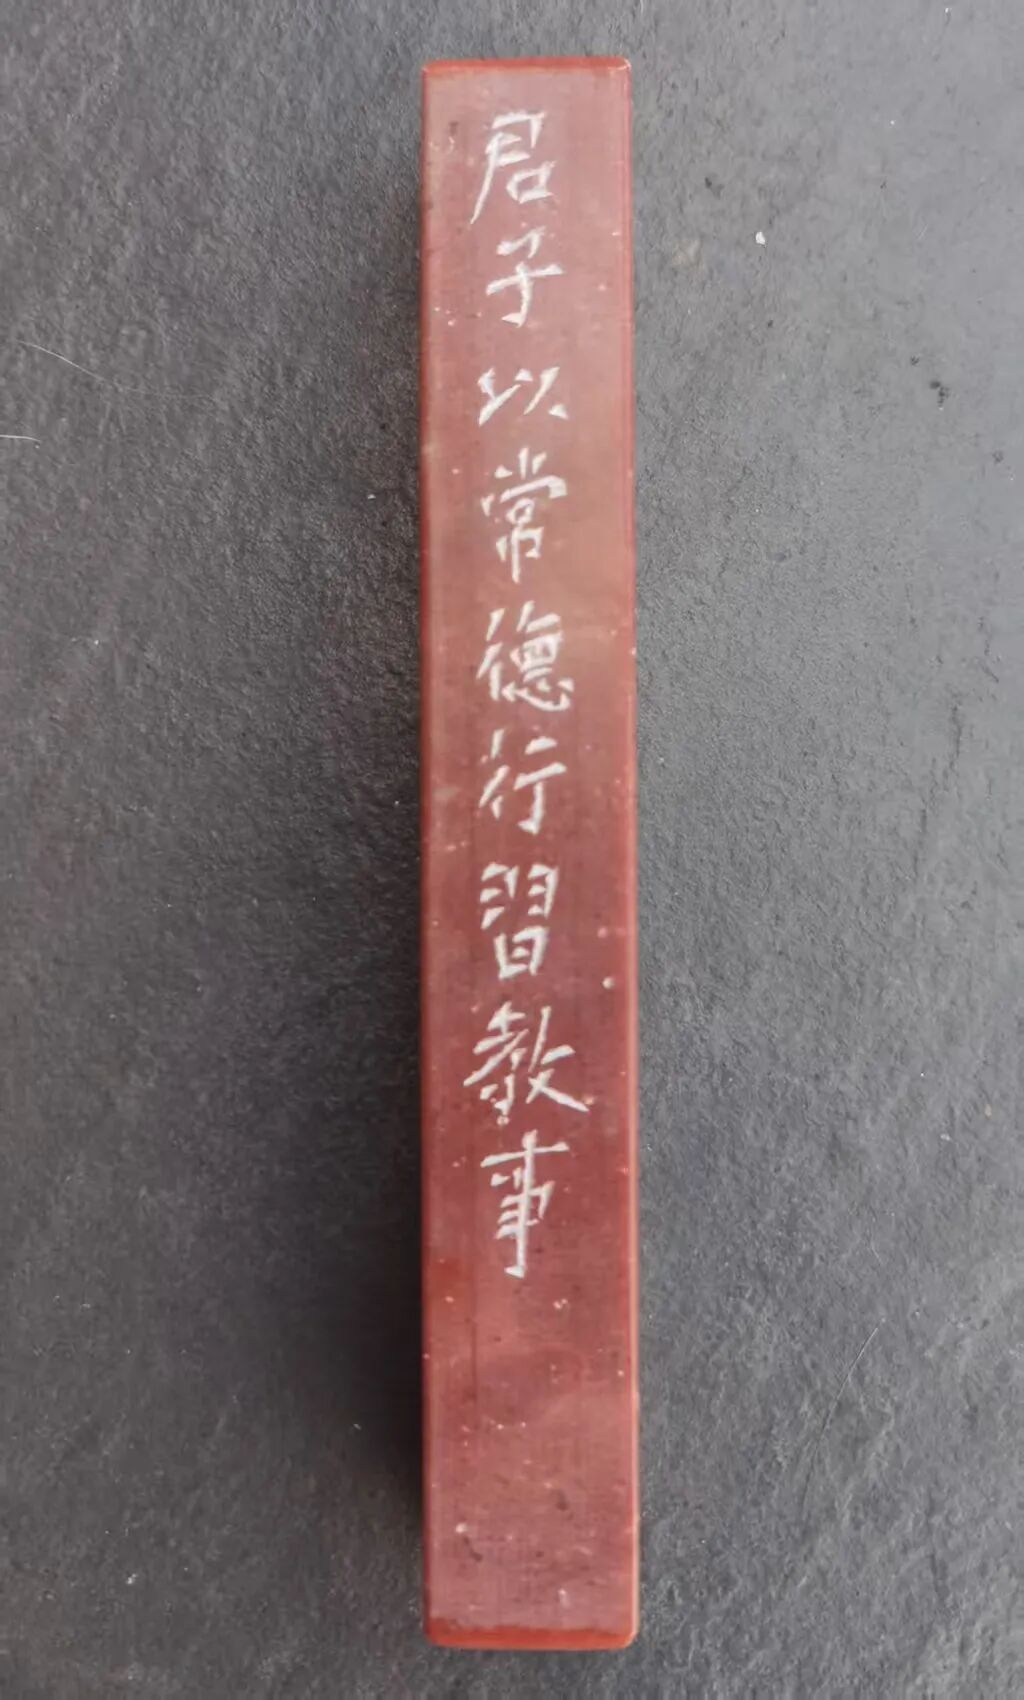 君子以常德行習教事